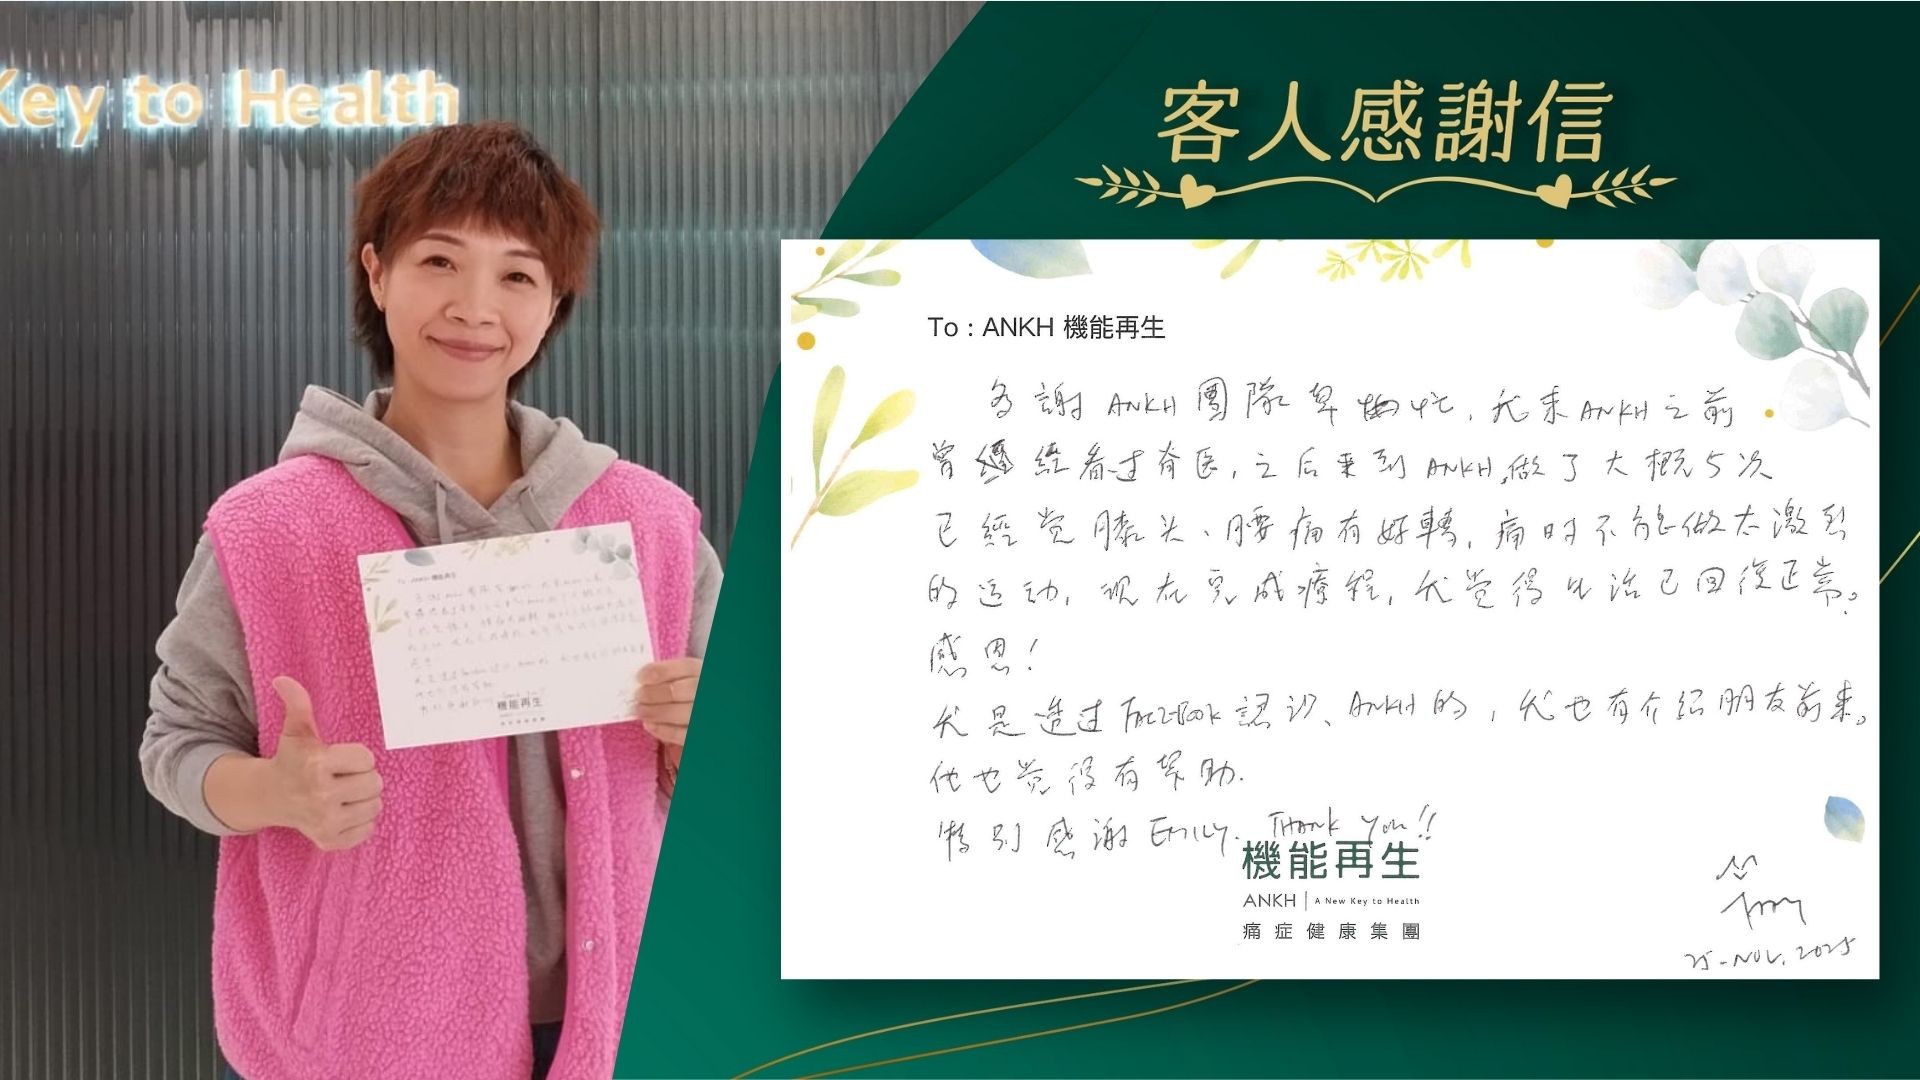 Key to Health
客人感謝信
To : ANKH 機能再生
多謝ANKH團隊幫忙, 我來ANKH之前
曾經看过脊医, 之后来到ANKH,做了大概5次
已經觉膝头、腰痛有好轉, 痛时不能做太激烈
的运动, 现在完成療程, 我觉得生活已回復正常。
感恩!
我是透过FACEBOOK認识、ANKH的, 我也有介绍朋友前来。
他也觉得有幫助.
特别感谢Emily. Thank You!!
機能再生
ANKH | A New Key to Health
痛症健康集團
25-NOV, 2025
To : ANKH 機能再生
機能再生